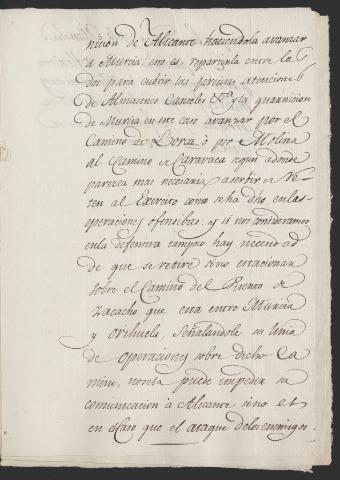 nicion de Alicante haciendola avanzar
a Murcia, esto es repartirla entre la
dos para cubrir las precisas atenciones
de Almacenes Canales &ra y la guarnicion
de Murcia en este caso avanzar por el
Camino de Lorca ò por Molina
al Camino de Caravaca segun adonde
parezca mas necesaria a servir de Ve-
ten al Exercito como se ha dho en las
operaciones ofensibas. y si nos consideramos
en la defensiva tampoco hay necesidad
de que se retire sino estacionar
sobre el Camino del Puerto de
Zacacho que esta entre Murcia
y Orihuela, señalandole su linea
de operaciones sobre dicho Ca
mino, no se la puede impedir su
comunicacion à Alicante sino es
en el Caso que el ataque de los enemigos